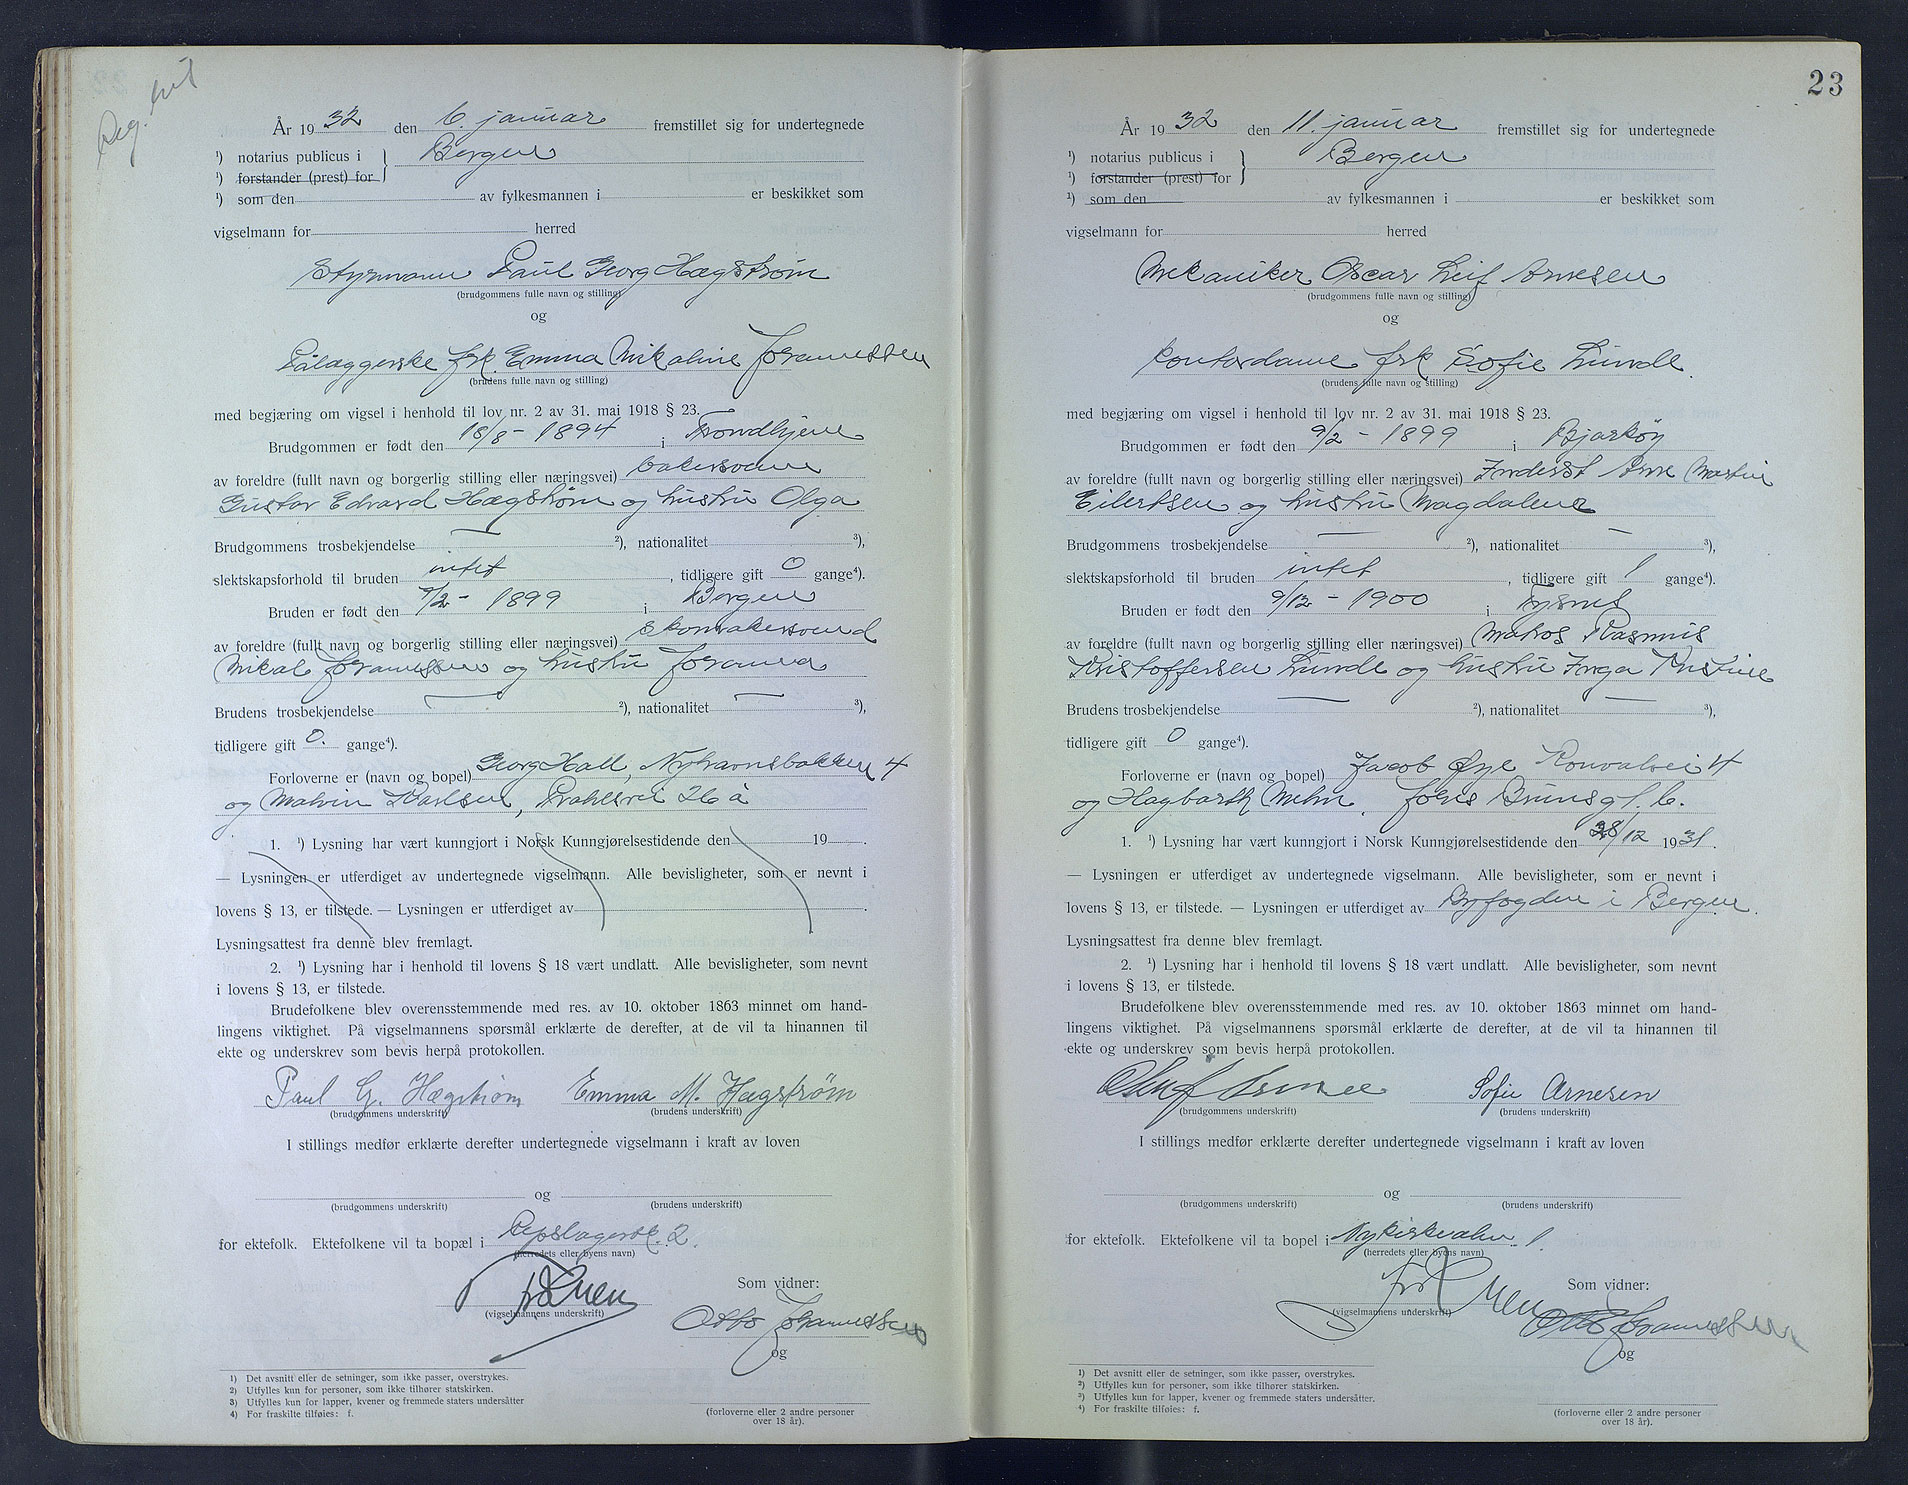 Reg. kort
År 19 32 den 6. januar fremstillet sig for undertegnede
¹) notarius publicus i } Bergen
¹) forstander (prest) for
¹) som den av fylkesmannen i er beskikket som
vigselmann for herred
Styrmann Paul Georg Hægstrøm
(brudgommens fulle navn og stilling)
og
Pålæggerske frk. Emma Nikoline Johannessen
(brudens fulle navn og stilling)
med begjæring om vigsel i henhold til lov nr. 2 av 31. mai 1918 § 23.
Brudgommen er født den 18/8 - 1894 i Trondhjem
av foreldre (fullt navn og borgerlig stilling eller næringsvei) bakersvenn
Gustav Edvard Hægstrøm og hustru Olga
Brudgommens trosbekjendelse — ²), nationalitet ³),
slektskapsforhold til bruden intet , tidligere gift 0 gange⁴).
Bruden er født den 7/2 - 1899 i Bergen
av foreldre (fullt navn og borgerlig stilling eller næringsvei) skomakersvend
Nikal Johannessen og hustru Johanna
Brudens trosbekjendelse — ²), nationalitet — ³),
tidligere gift 0. gange⁴).
Forloverne er (navn og bopel) Georg Hall, Nyhavnsbakken 4
og Malvin Karlsen, Prahlsvei 26 a
1. ¹) Lysning har vært kunngjort i Norsk Kunngjørelsestidende den 19 .
— Lysningen er utferdiget av undertegnede vigselmann. Alle bevisligheter, som er nevnt i
lovens § 13, er tilstede. — Lysningen er utferdiget av .
Lysningsattest fra denne blev fremlagt.
2. ¹) Lysning har i henhold til lovens § 18 vært undlatt. Alle bevisligheter, som nevnt
i lovens § 13, er tilstede.
Brudefolkene blev overensstemmende med res. av 10. oktober 1863 minnet om hand-
lingens viktighet. På vigselmannens spørsmål erklærte de derefter, at de vil ta hinannen til
ekte og underskrev som bevis herpå protokollen.
Paul G. Hægstrøm Emma M. Hægstrøm
(brudgommens underskrift) (brudens underskrift)
I stillings medfør erklærte derefter undertegnede vigselmann i kraft av loven
og
(brudgommens underskrift) (brudens underskrift)
for ektefolk. Ektefolkene vil ta bopæl i Repslagersk. 2.
(herredets eller byens navn)
Som vidner:
(vigselmannens underskrift)
Otto Johannessen
og
1) Det avsnitt eller de setninger, som ikke passer, overstrykes.
2) Utfylles kun for personer, som ikke tilhører statskirken.
3) Utfylles kun for lapper, kvener og fremmede staters undersåtter
4) For fraskilte tilføies: f.
(forloverne eller 2 andre personer
over 18 år).
23
År 19 32 den 11. januar fremstillet sig for undertegnede
¹) notarius publicus i } Bergen
¹) forstander (prest) for
¹) som den av fylkesmannen i er beskikket som
vigselmann for herred
Mekaniker Oscar Leif Arnesen
(brudgommens fulle navn og stilling)
og
Kontordame frk Sofie Lunde.
(brudens fulle navn og stilling)
med begjæring om vigsel i henhold til lov nr. 2 av 31. mai 1918 § 23.
Brudgommen er født den 9/2 - 1899 i Bjarkøy
av foreldre (fullt navn og borgerlig stilling eller næringsvei) Inderst Arne Martin
Eilertsen og hustru Magdalena
Brudgommens trosbekjendelse — ²), nationalitet — ³),
slektskapsforhold til bruden intet , tidligere gift 1 gange⁴).
Bruden er født den 9/12 - 1900 i Tysnes
av foreldre (fullt navn og borgerlig stilling eller næringsvei) Matros Rasmus
Kristoffersen Lunde og hustru Inga Kristine
Brudens trosbekjendelse — ²), nationalitet — ³),
tidligere gift 0 gange⁴).
Forloverne er (navn og bopel) Jacob Øye Konvalvei 4
og Hagbarth Mehn. Johs Brunsgt. 6.
1. ¹) Lysning har vært kunngjort i Norsk Kunngjørelsestidende den 28/12 1931.
— Lysningen er utferdiget av undertegnede vigselmann. Alle bevisligheter, som er nevnt i
lovens § 13, er tilstede. — Lysningen er utferdiget av Byfogden i Bergen.
Lysningsattest fra denne blev fremlagt.
2. ¹) Lysning har i henhold til lovens § 18 vært undlatt. Alle bevisligheter, som nevnt
i lovens § 13, er tilstede.
Brudefolkene blev overensstemmende med res. av 10. oktober 1863 minnet om hand-
lingens viktighet. På vigselmannens spørsmål erklærte de derefter, at de vil ta hinannen til
ekte og underskrev som bevis herpå protokollen.
Sofie Arnesen
(brudgommens underskrift) (brudens underskrift)
I stillings medfør erklærte derefter undertegnede vigselmann i kraft av loven
og
(brudgommens underskrift) (brudens underskrift)
for ektefolk. Ektefolkene vil ta bopel i Nykirkealm. 1.
(herredets eller byens navn)
Som vidner:
(vigselmannens underskrift)
Otto Johannessen
og
¹) Det avsnitt eller de setninger, som ikke passer, overstrykes.
²) Utfylles kun for personer, som ikke tilhører statskirken.
³) Utfylles kun for lapper, kvener og fremmede staters undersåtter.
⁴) For fraskilte tilføies: f.
(forloverne eller 2 andre personer
over 18 år).